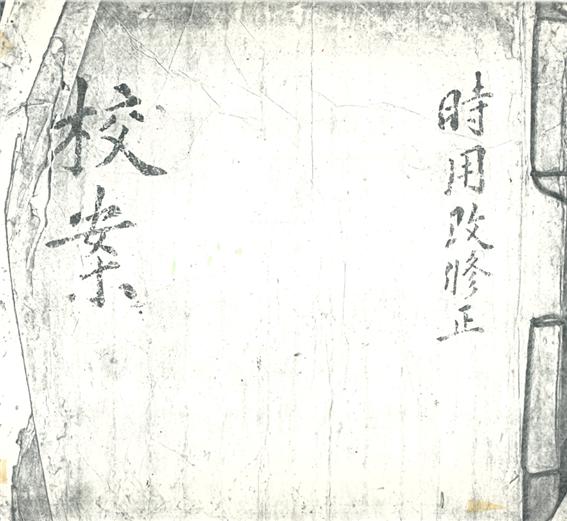 時用改修正
校案